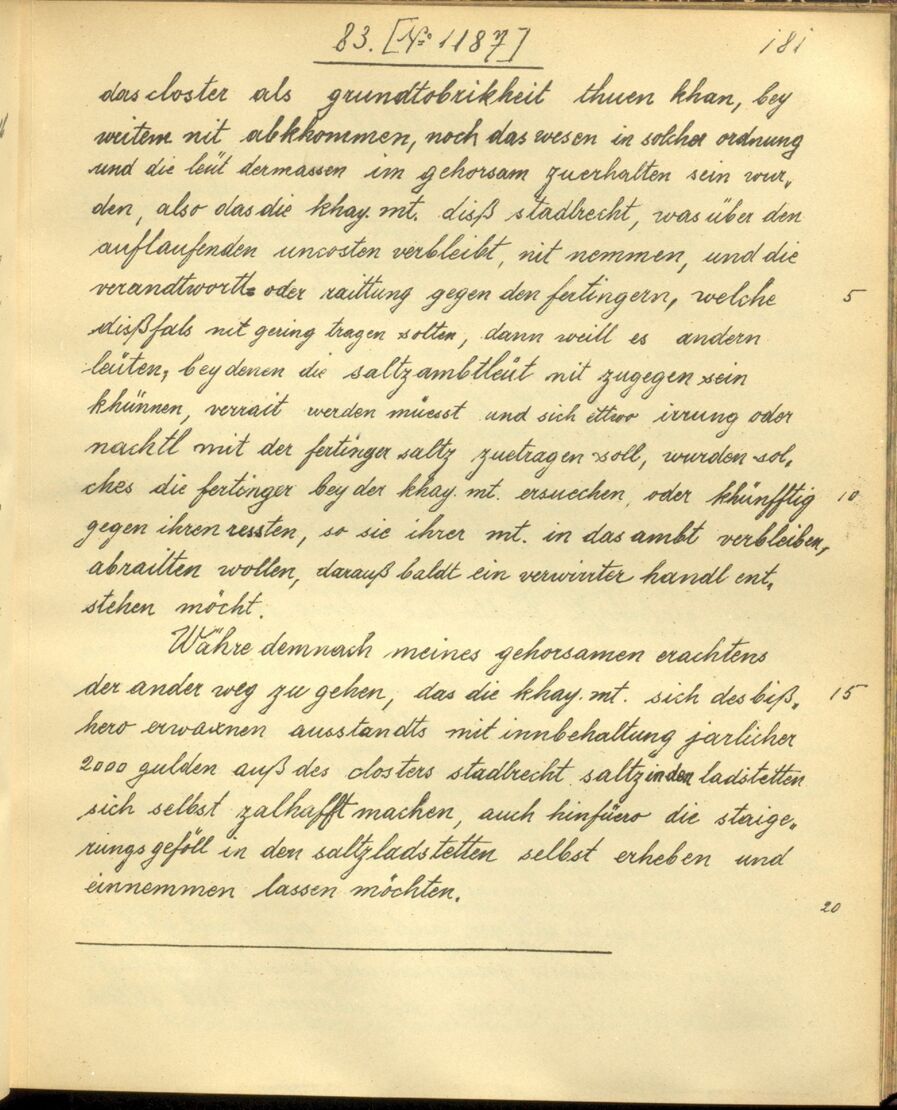 83. [No 1187] 181
das closter als grundtobrikheit thuen khan, bey
weitem nit abkkommen, noch das wesen in solcher ordnung
und die leüt dermassen im gehorsam zuerhalten sein wur„
den, also das die khay. mt. diß stadlrecht, was über den
auflaufenden uncosten verbleibt, nit nemmen, und die
verandtwortt= oder raittung gegen den fertingern, welche 5
dißfals nit gering tragen solten, dann weill es andern
leüten, bey denen die saltzambtleüt nit zugegen sein
khünnen, verrait werden müesst und sich ettwo irrung oder
nachtl mit der fertinger saltz zuetragen soll, wurden sol„
ches die fertinger bey der khay. mt. ersuechen, oder khünfftig 10
gegen ihren ressten, so sie ihrer mt. in das ambt verbleiben,
abraitten wollen, darauß baldt ein verwirrter handl ent„
stehen möcht.
Währe demnach meines gehorsamen erachtens
der ander weg zu gehen, das die khay. mt. sich des biß„ 15
hero erwaxnen ausstandts mit innbehaltung jarlicher
2000 gulden auß des closters stadlrecht saltz in den ladstetten
sich selbst zalhafft machen, auch hinfüero die staige„
rungsgeföll in den saltzladstetten selbst erheben und
einnemmen lassen möchten.
20